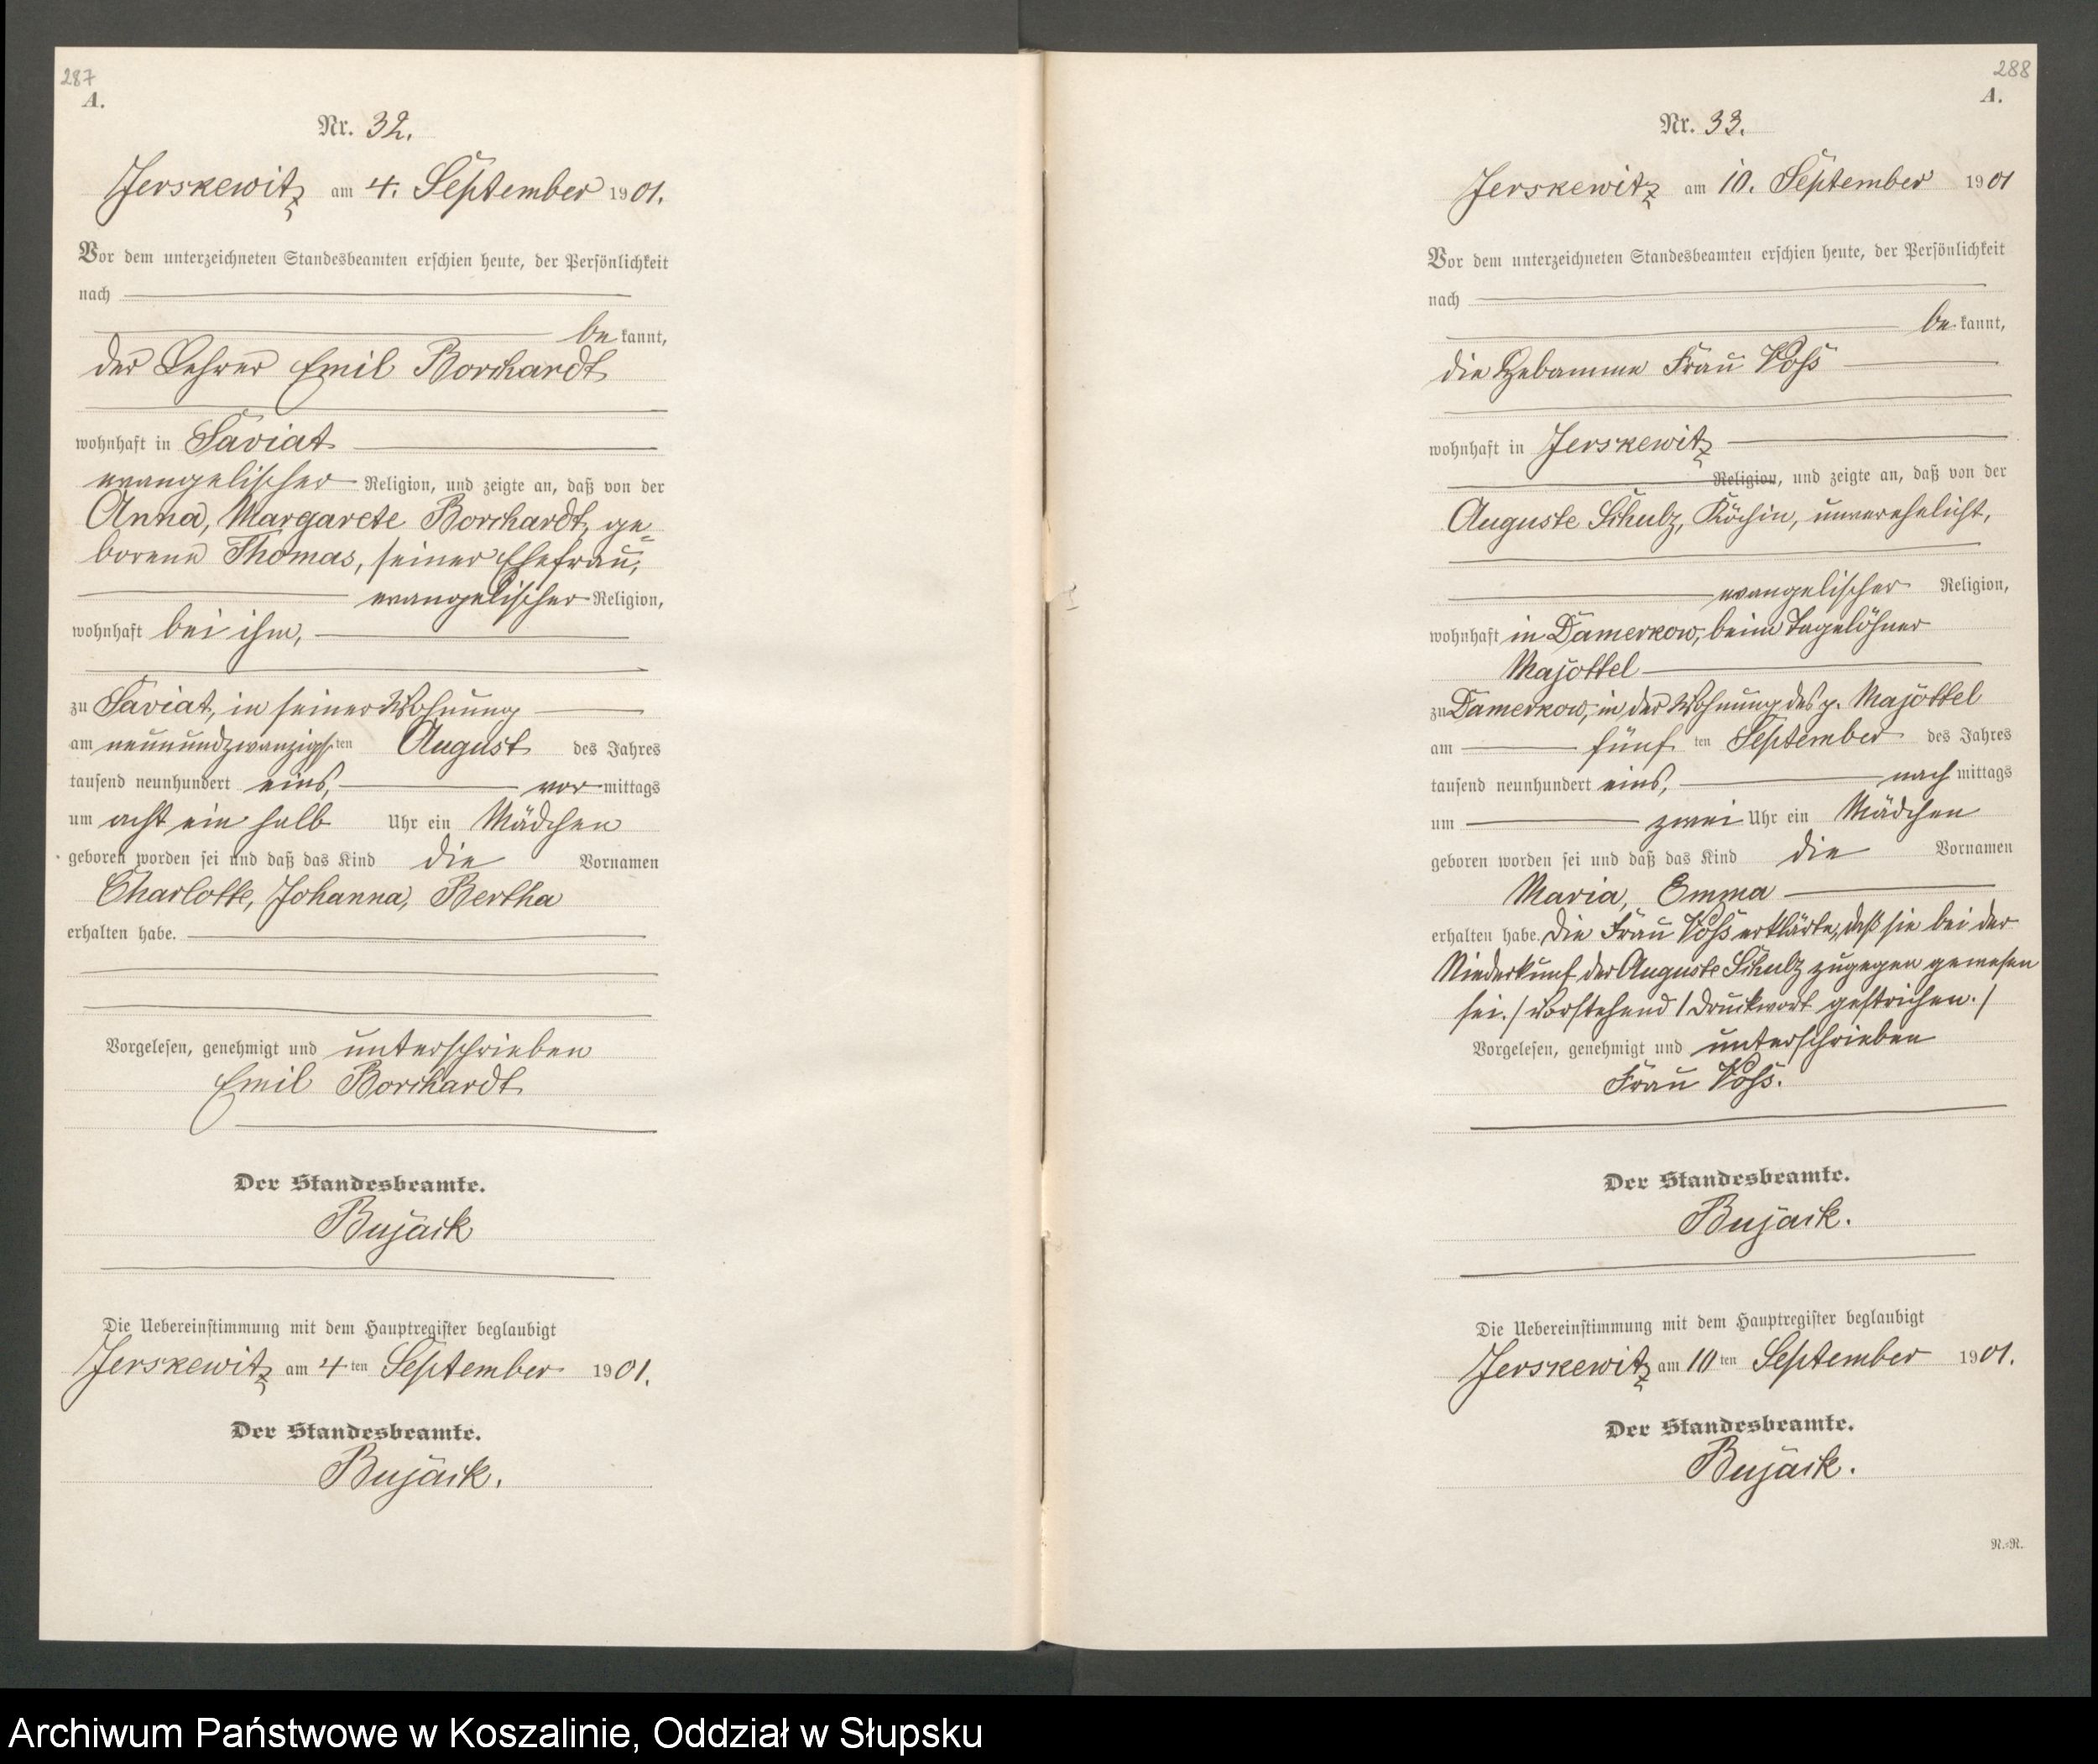 287
A.
Nr. 32.
Jerskewitz am 4. September 1901.
Vor dem unterzeichneten Standesbeamten erschien heute, der Persönlichkeit
nach
be kannt,
der Lehrer Emil Borchardt
wohnhaft in Saviat
evangelischer Religion, und zeigte an, daß von der
Anna, Margarete Borchardt, ge=
borene Thomas, seiner Ehefrau,
evangelischer Religion,
wohnhaft bei ihm,
zu Saviat, in seiner Wohnung
am neunundzwanzigsten August des Jahres
tausend neunhundert eins, vor mittags
um acht ein halb Uhr ein Mädchen
geboren worden sei und daß das Kind die Vornamen
Charlotte, Johanna, Bertha
erhalten habe.
Vorgelesen, genehmigt und unterschrieben
Emil Borchardt
Der Standesbeamte.
Bujack
Die Uebereinstimmung mit dem Hauptregister beglaubigt
Jerskewitz am 4ten September 1901.
Der Standesbeamte.
Bujack.
288
A.
Nr. 33.
Jerskewitz am 10. September 1901
Vor dem unterzeichneten Standesbeamten erschien heute, der Persönlichkeit
nach
be kannt,
die Hebamme Frau Voß
wohnhaft in Jerskewitz
Religion, und zeigte an, daß von der
Auguste Schulz, Köchin, unverehelicht,
evangelischer Religion,
wohnhaft in Damerkow, beim Tagelöhner
Majottel
zu Damerkow, in der Wohnung des p. Majottel
am fünf ten September des Jahres
tausend neunhundert eins, nach mittags
um zwei Uhr ein Mädchen
geboren worden sei und daß das Kind die Vornamen
Maria, Emma
erhalten habe. Die Frau Voß erklärte, daß sie bei der
Niederkunf der Auguste Schulz zugegen gewesen
sei. / Vorstehend 1 Druckwort gestrichen. /
Vorgelesen, genehmigt und unterschrieben
Frau Voß.
Der Standesbeamte.
Bujack.
Die Uebereinstimmung mit dem Hauptregister beglaubigt
Jerskewitz am 10ten September 1901.
Der Standesbeamte.
Bujack.
N.=R.
Archiwum Państwowe w Koszalinie, Oddział w Słupsku